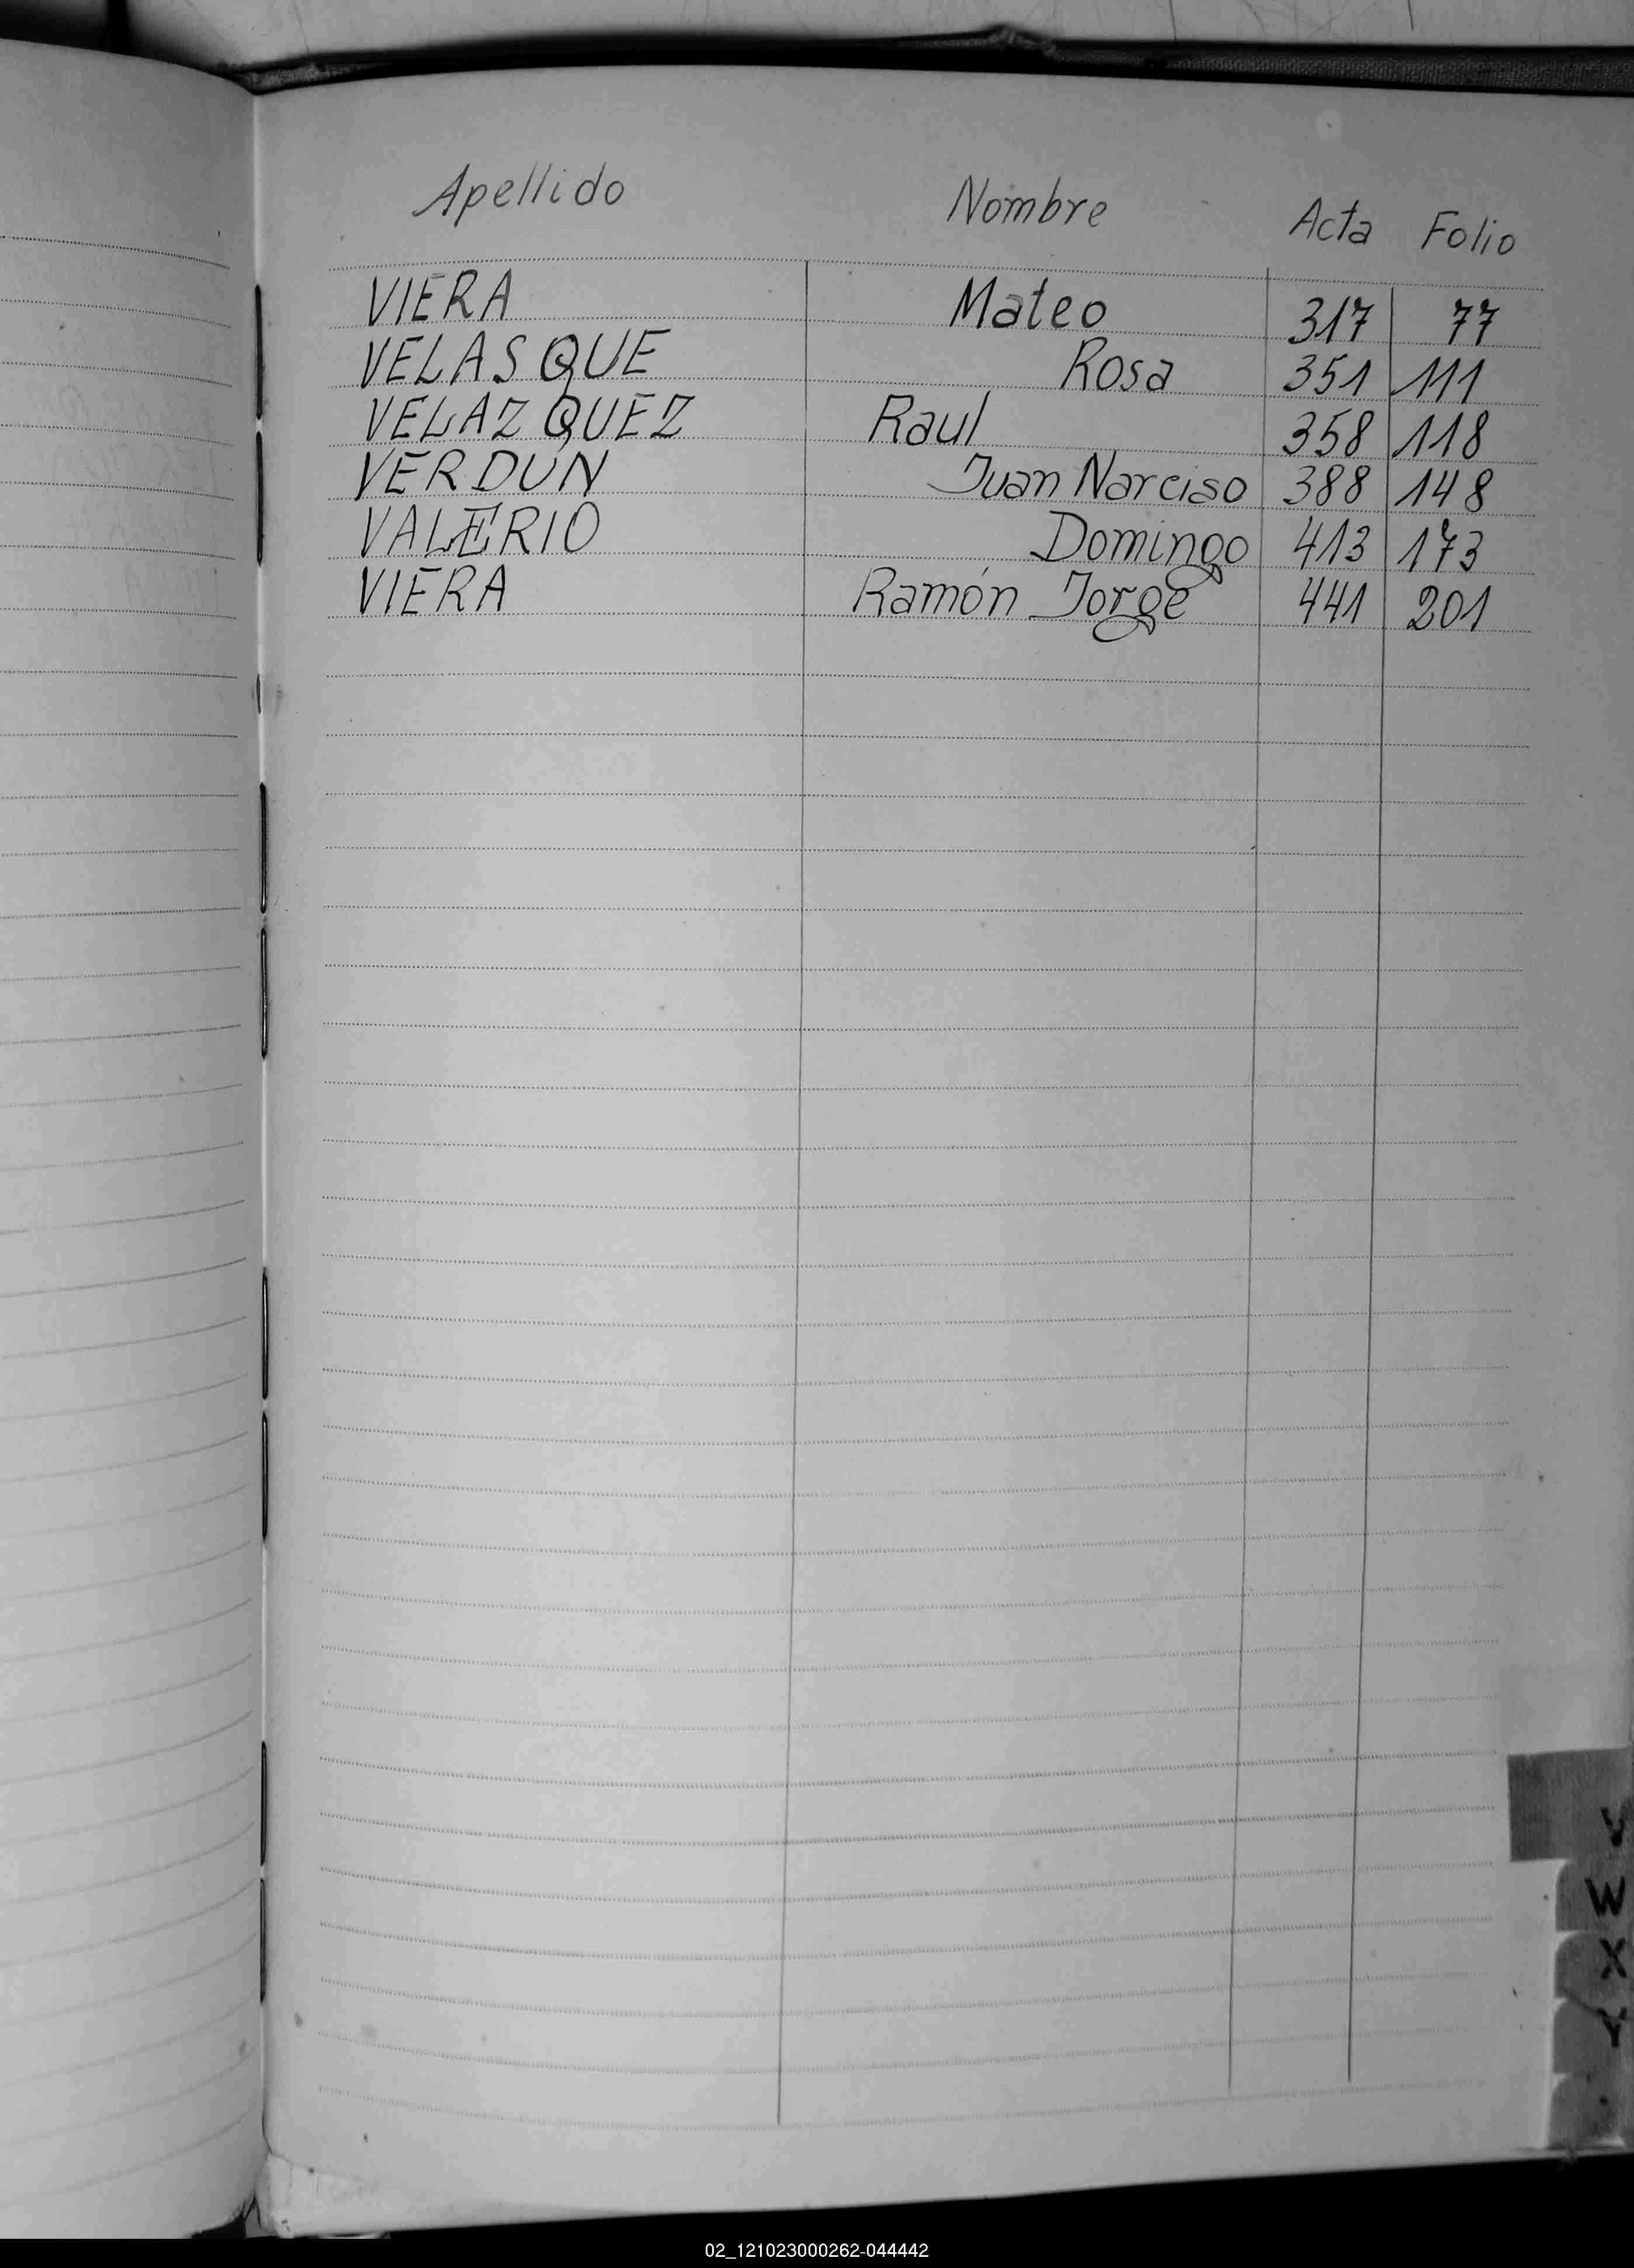 Apellido Nombre Acta Folio
VIERA Mateo 317 77
VELASQUE Rosa 351 111
VELAZQUEZ Raul 358 118
VERDUN Juan Narciso 388 148
VALERIO Domingo 413 173
VIERA Ramón Jorge 441 201
V
W
X
Y
02_121023000262-044442